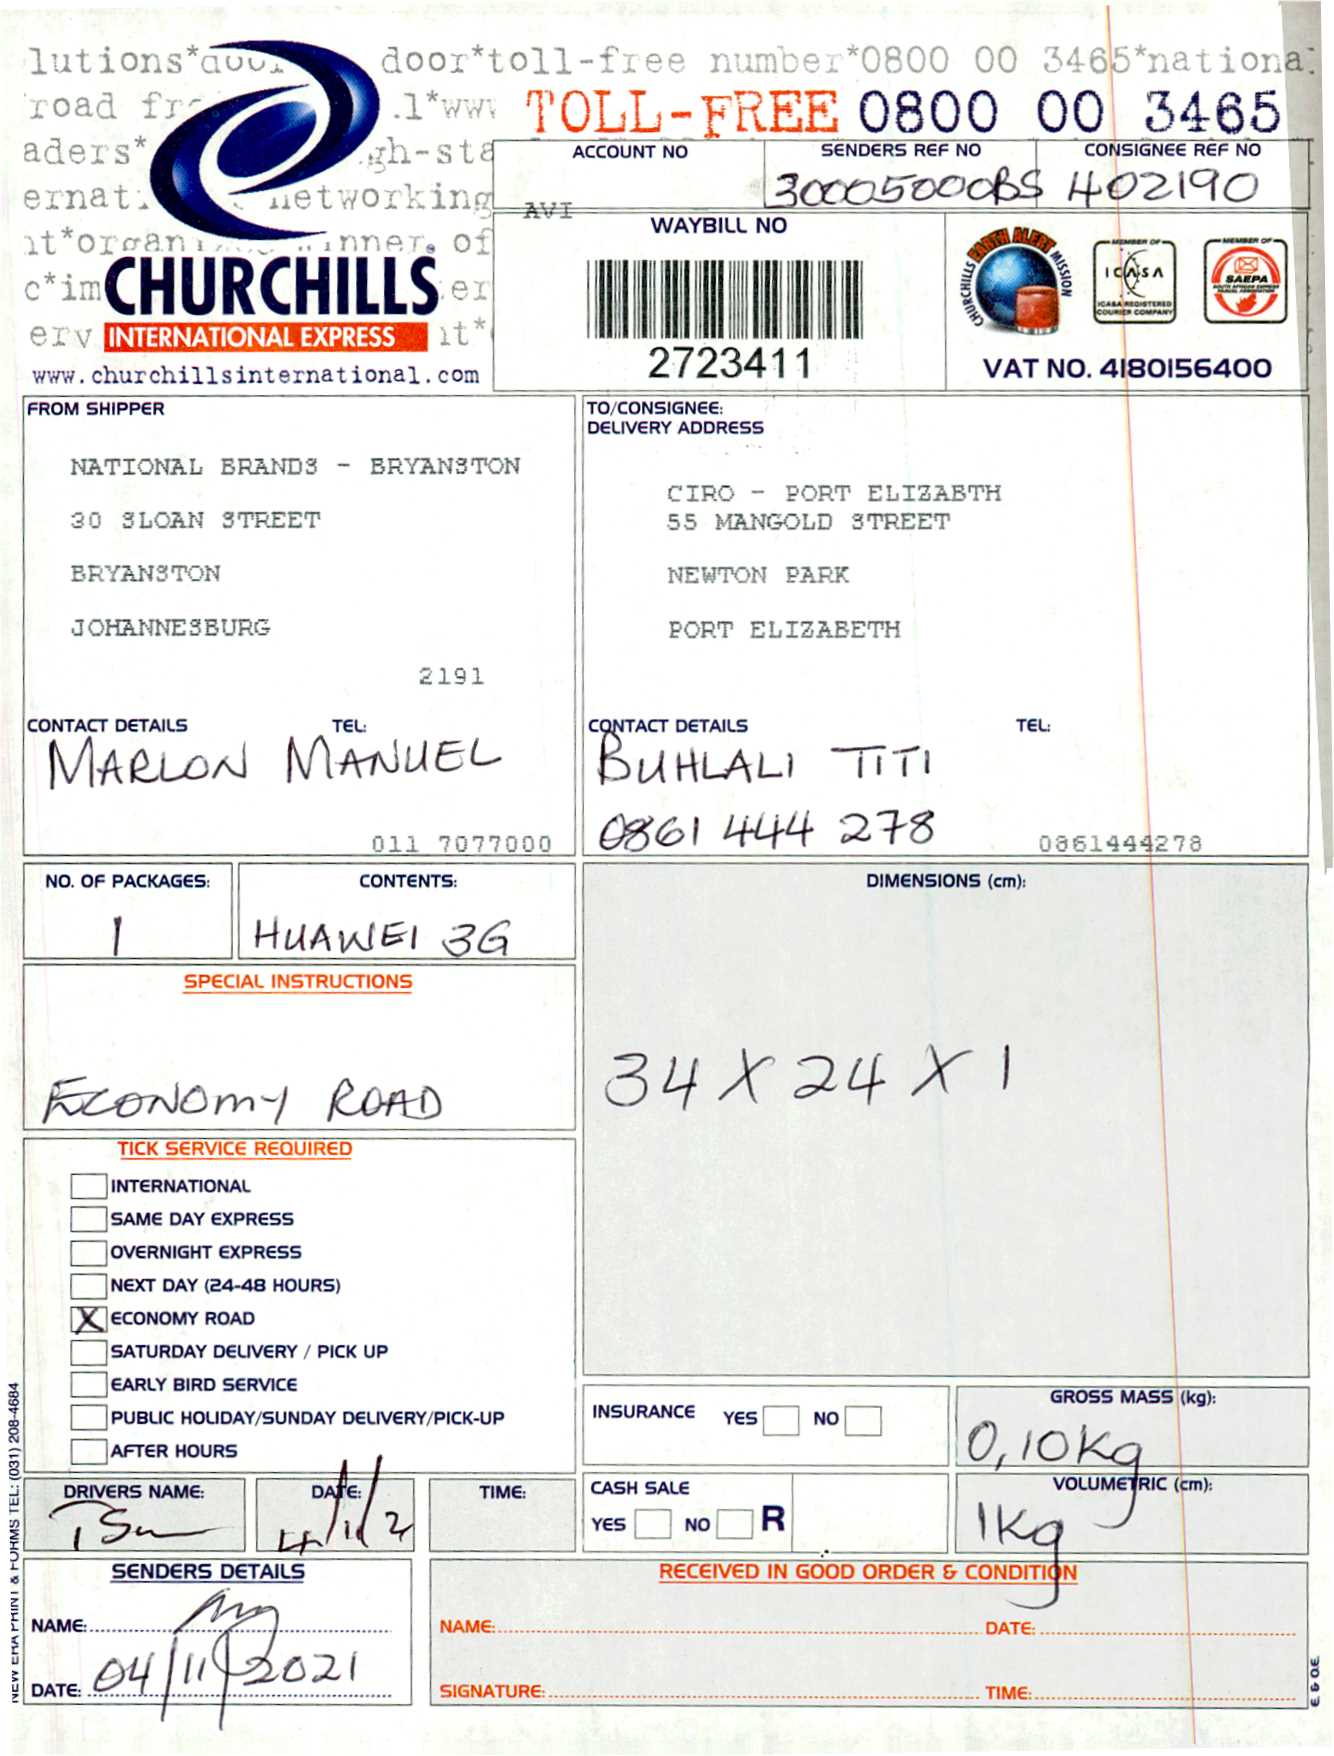 lutions*door door*toll-free number*0800 00 3465*nationa
road fr .l*www TOLL-FREE 0800 00 3465
aders* gh-sta
ernat networking
nt*organi winner. of
c*im er
erv nt*
CHURCHILLS
INTERNATIONAL EXPRESS
www.churchillsinternational.com
ACCOUNT NO
AVI
SENDERS REF NO
30005000BS
CONSIGNEE REF NO
402190
WAYBILL NO
2723411
CHURCHILLS EARTH ALERT MISSION
MEMBER OF
ICASA
ICASA REGISTERED
COURIER COMPANY
MEMBER OF
SAEPA
VAT NO. 4180156400
FROM SHIPPER
NATIONAL BRANDS - BRYANSTON
30 SLOAN STREET
BRYANSTON
JOHANNESBURG
2191
CONTACT DETAILS TEL:
MARLON MANUEL
011 7077000
TO/CONSIGNEE:
DELIVERY ADDRESS
CIRO - PORT ELIZABTH
55 MANGOLD STREET
NEWTON PARK
PORT ELIZABETH
CONTACT DETAILS TEL:
BUHLALI TITI
0861 444 278 0861444278
NO. OF PACKAGES:
1
CONTENTS:
HUAWEI 3G
DIMENSIONS (cm):
34 X 24 X 1
SPECIAL INSTRUCTIONS
ECONOMY ROAD
TICK SERVICE REQUIRED
INTERNATIONAL
SAME DAY EXPRESS
OVERNIGHT EXPRESS
NEXT DAY (24-48 HOURS)
X ECONOMY ROAD
SATURDAY DELIVERY / PICK UP
EARLY BIRD SERVICE
PUBLIC HOLIDAY/SUNDAY DELIVERY/PICK-UP
AFTER HOURS
INSURANCE YES NO
GROSS MASS (kg):
0,10kg
DRIVERS NAME:
DATE:
4/11/2
TIME:
CASH SALE
YES NO R
VOLUMETRIC (cm):
1kg
SENDERS DETAILS
NAME:
DATE: 04/11/2021
RECEIVED IN GOOD ORDER & CONDITION
NAME: DATE:
SIGNATURE: TIME:
NEW ERA PRINT & FORMS TEL: (031) 208-4684
E & O.E.